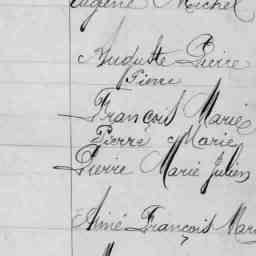 Eugène Michel
Auguste Pierre
Pierre
François Marie
Pierre Marie
Pierre Marie Julien
Aimé François Mar